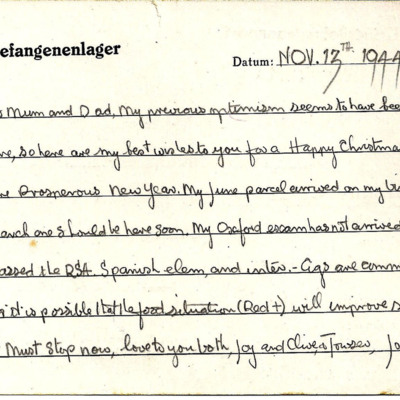 efangenenlager
Datum: NOV. 13TH 1944
Mum and Dad, My previous optimism seems to have bee
so here are my best wishes to you for a Happy Christma
Prosperous New Year. My June parcel arrived on my bi
arch one should be here soon. My Oxford exam has not arrived
assed the RSA Spanish elem, and inter. - Cigs are comm
it is possible that the food situation (Red +) will improve s
Must stop now, love to you both, Joy and Clive + Towser, Jo